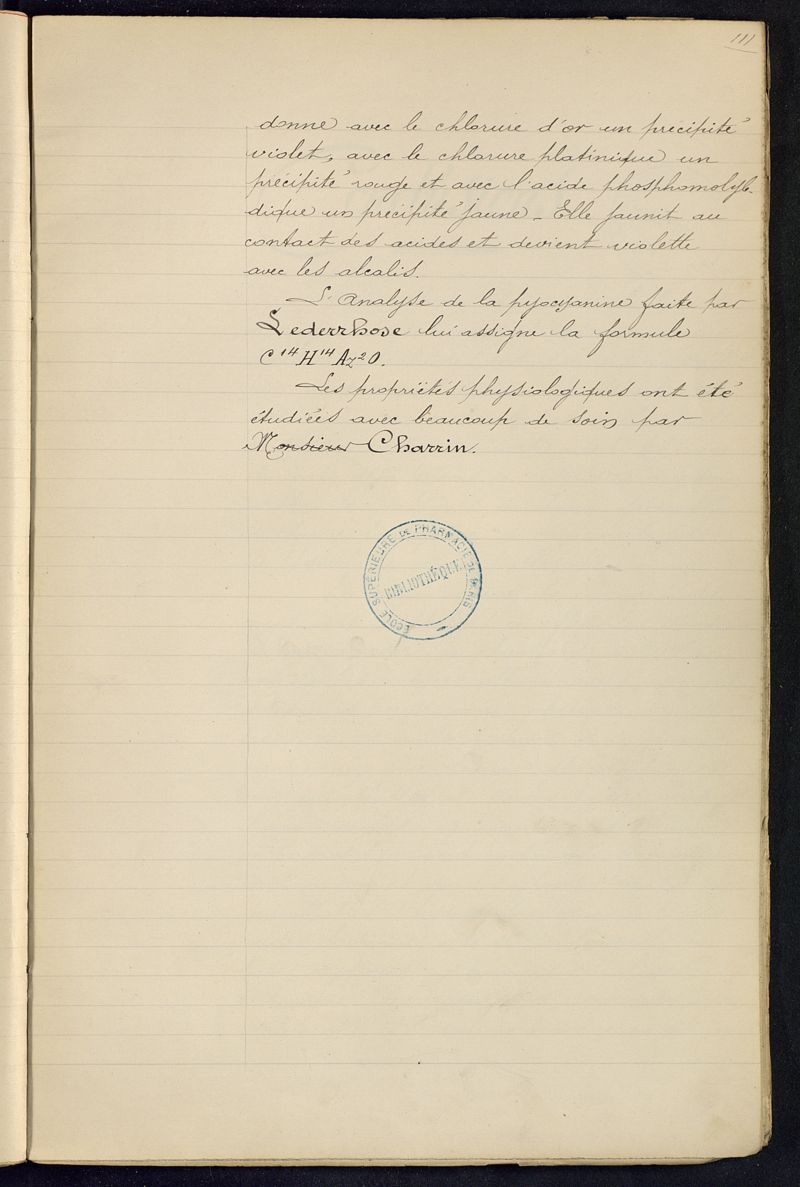 111
donne avec le chlorure d'or un précipité
violet, avec le chlorure platinique un
précipité rouge et avec l'acide phosphomolyb-
dique un précipité jaune - Elle jaunit au
contact des acides et devient violette
avec les alcalis.
L'Analyse de la pyocyanine faite par
Lederrhose lui assigne la formule
C¹⁴H¹⁴Az²O.
Les propriétés physiologiques ont été
étudiées avec beaucoup de soin par
Monsieur Charrin.
ÉCOLE SUPÉRIEURE DE PHARMACIE DE PARIS
BIBLIOTHÈQUE